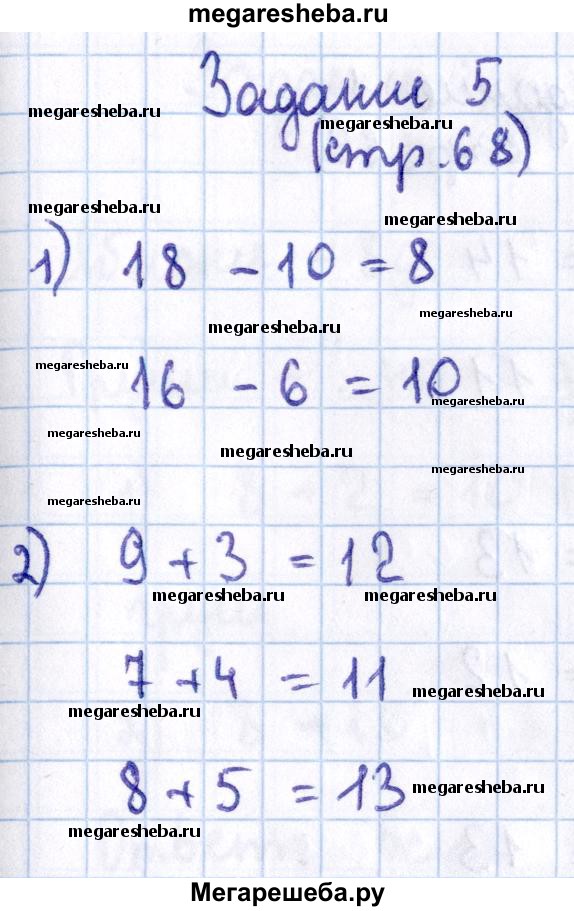 megaresheba.ru
Задание 5
megaresheba.ru
megaresheba.ru
(стр. 68)
megaresheba.ru
megaresheba.ru
1) 18 - 10 = 8
megaresheba.ru
megaresheba.ru
megaresheba.ru
16 - 6 = 10
megaresheba.ru
megaresheba.ru
megaresheba.ru
megaresheba.ru
megaresheba.ru
2) 9 + 3 = 12
megaresheba.ru megaresheba.ru
7 + 4 = 11
megaresheba.ru
megaresheba.ru
8 + 5 = 13
megaresheba.ru
megaresheba.ru
Мегарешеба.ру